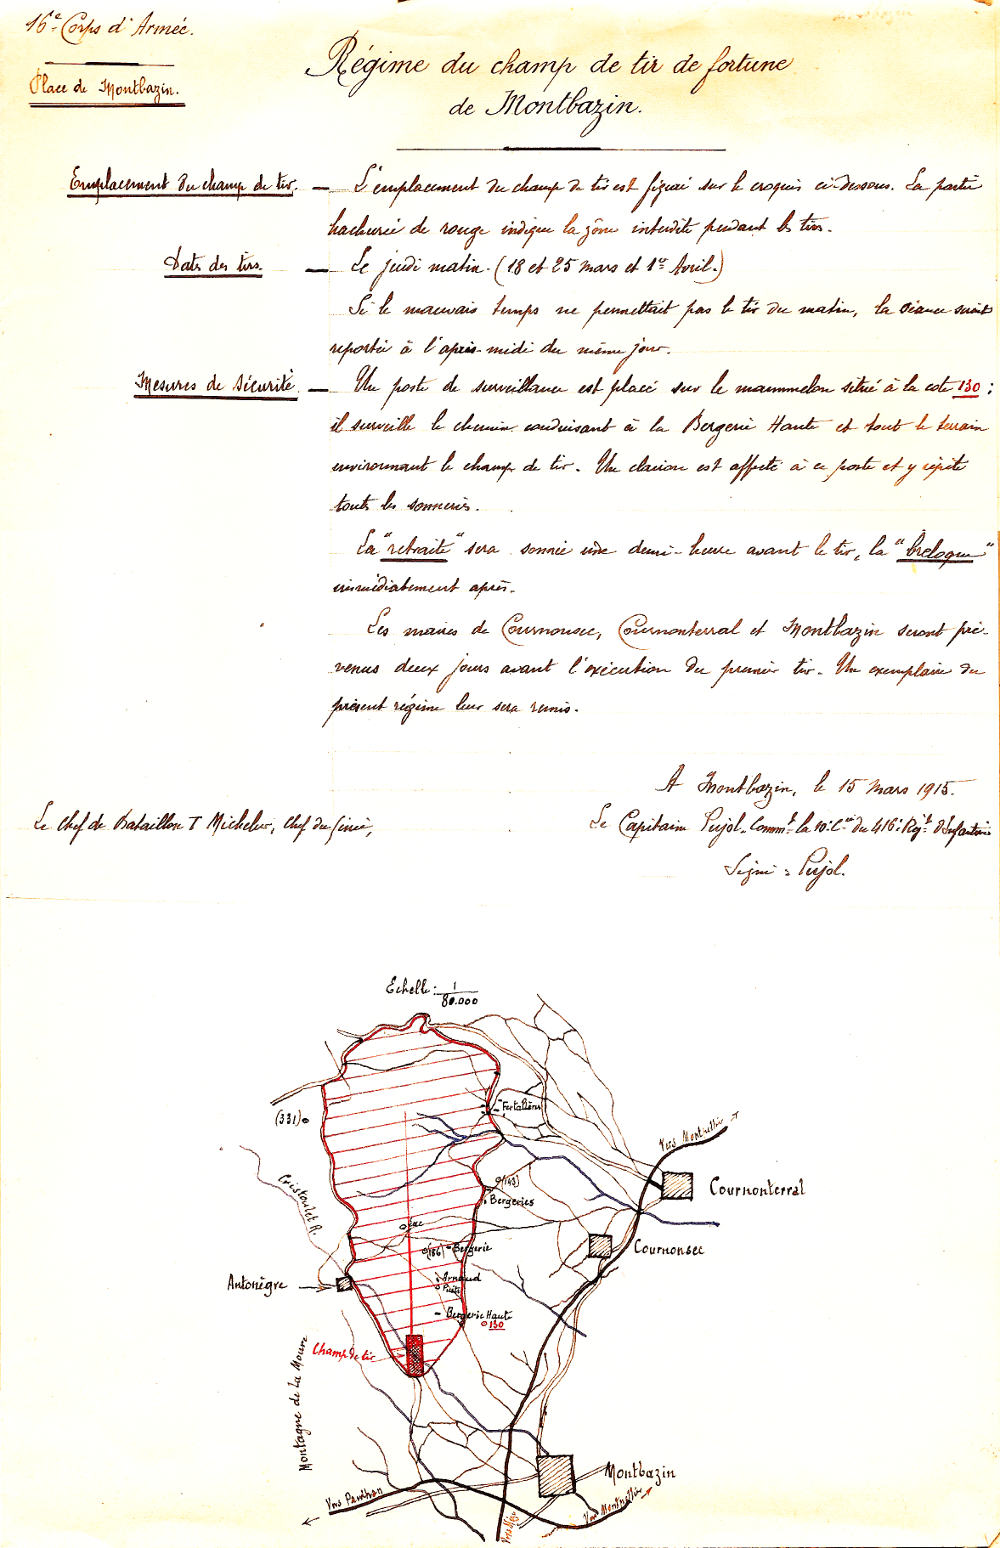 16e Corps d'Armée.
Place de Montbazin.
Régime du champ de tir de fortune
de Montbazin.
Emplacement du champ de tir. — L'emplacement du champ de tir est figuré sur le croquis ci-dessous. La partie
hachurée de rouge indique la zône interdite pendant les tirs.
Dates des tirs. — Le jeudi matin. (18 et 25 Mars et 1er Avril.)
Si le mauvais temps ne permettait pas le tir du matin, la séance serait
reportée à l'après-midi du même jour.
Mesures de Sécurité. — Un poste de surveillance est placé sur le mammelon situé à la cote 130 :
il surveille le chemin conduisant à la Bergerie Haute et tout le terrain
environnant le champ de tir. Un clairon est affecté à ce poste et y répète
toutes les sonneries.
La "retraite" sera sonnée une demi-heure avant le tir, la "breloque"
immédiatement après.
Les maires de Cournonsec, Cournonterral et Montbazin seront pré-
venus deux jours avant l'exécution du premier tir. Un exemplaire du
présent régime leur sera remis.
A Montbazin, le 15 Mars 1915.
Le Chef de Bataillon T Micheler, Chef du Génie,
Le Capitaine Pujol, Commt la 10e Cie du 416e Regt d'Infanterie
Signé : Pujol.
Echelle : 1/80.000
(331)
Vers Montpellier
Cournonterral
(143)
Bergeries
Cristoulet R.
(186) Bergerie
Cournonsec
Antonègre
Arnaud
Puits
Bergerie Haute
130
Champ de tir
Montagne de la Moure
Montbazin
Vers Montpellier